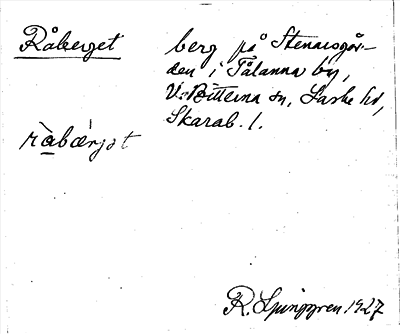 Råberget
berg på Stensgår-
den i Tålanna by,
V. Bitterna sn, Laske hd,
Skarab. l.
ràbærjət
R. Ljunggren 1927